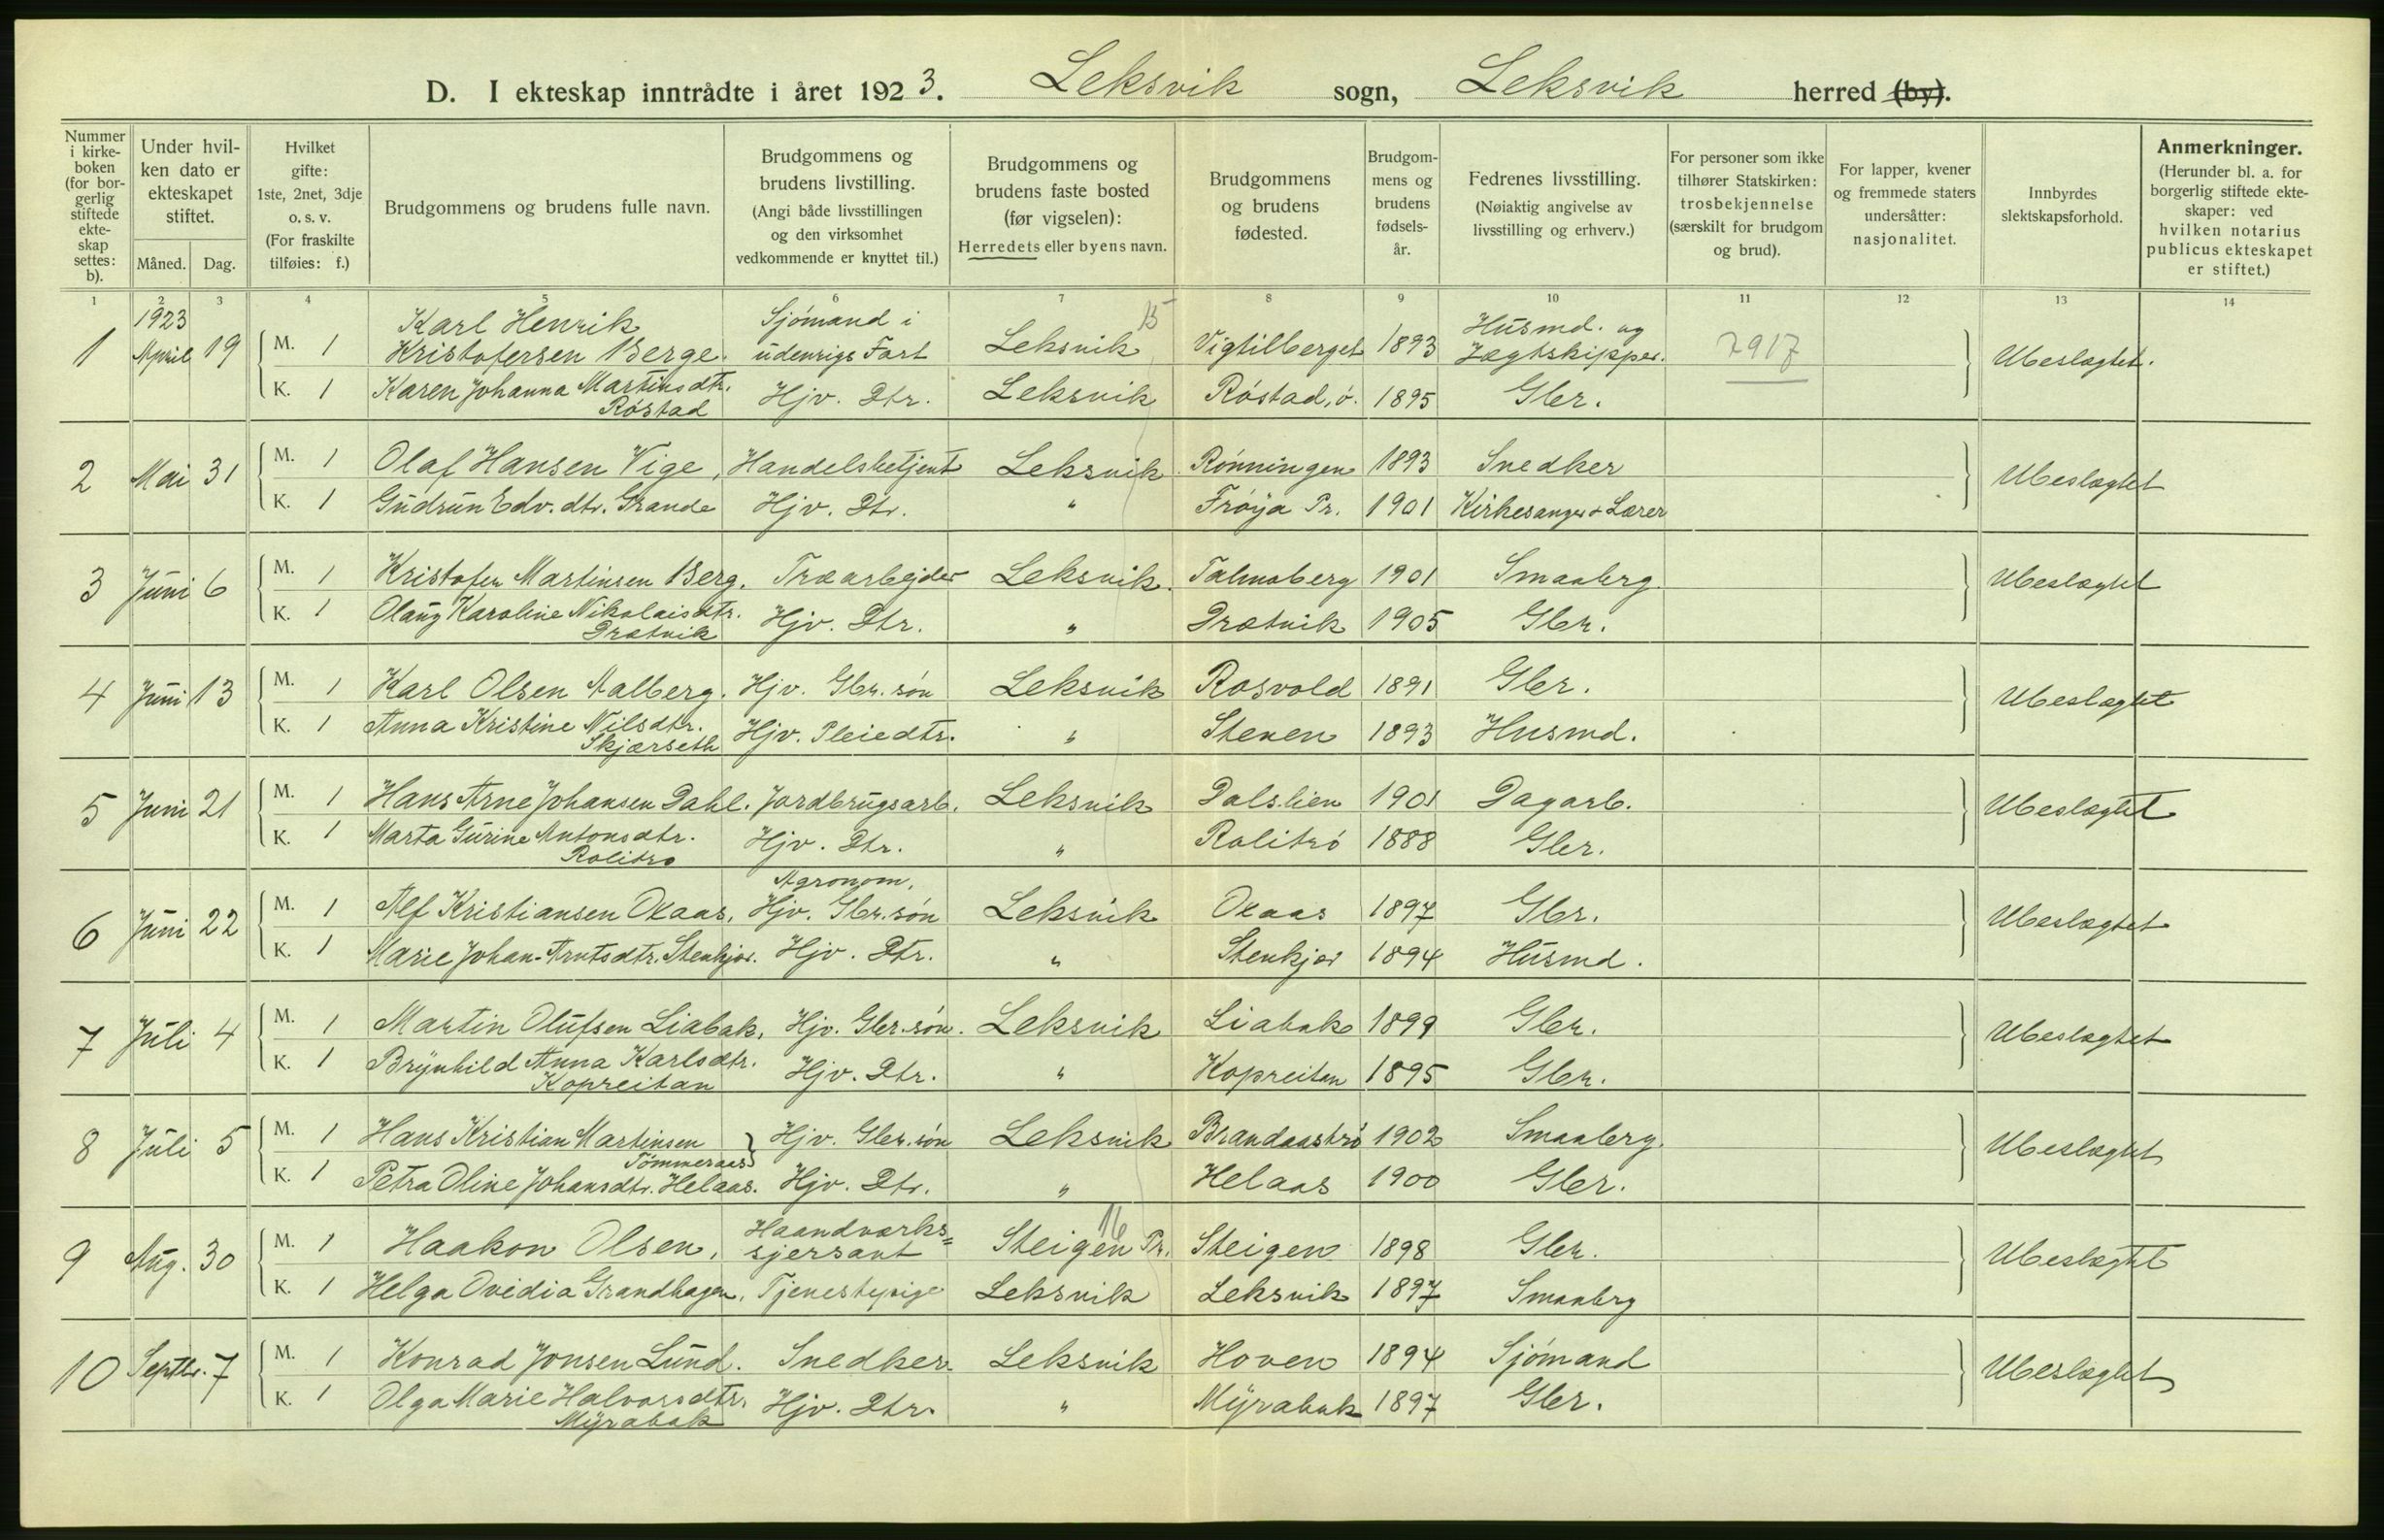 D. I ekteskap inntrådte i året 1923. Leksvik sogn, Leksvik herred (by).
Nummer i kirke-boken (for bor-gerlig stiftede ekte-skap settes: b).
Under hvil-ken dato er ekteskapet stiftet.
Måned. Dag.
Hvilket gifte: 1ste, 2net, 3dje o. s. v. (For fraskilte tilføies: f.)
Brudgommens og brudens fulle navn.
Brudgommens og brudens livstilling. (Angi både livsstillingen og den virksomhet vedkommende er knyttet til.)
Brudgommens og brudens faste bosted (før vigselen): Herredets eller byens navn.
Brudgommens og brudens fødested.
Brudgom-mens og brudens fødsels-år.
Fedrenes livsstilling. (Nøiaktig angivelse av livsstilling og erhverv.)
For personer som ikke tilhører Statskirken: trosbekjennelse (særskilt for brudgom og brud).
For lapper, kvener og fremmede staters undersåtter: nasjonalitet.
Innbyrdes slektskapsforhold.
Anmerkninger. (Herunder bl. a. for borgerlig stiftede ekte-skaper: ved hvilken notarius publicus ekteskapet er stiftet.)
1 2 3 4 5 6 7 8 9 10 11 12 13 14
15
1 1923 April 19 M. 1 Karl Henrik Kristofersen Berge. Sjømand i udenrigs Fart Leksvik Vigtilberget 1893 Husmd. og Jægtskipper. 2917 Ubeslægtet.
K. 1 Karen Johanna Martinsdtr. Røstad Hjv. Dtr. Leksvik Røstad, ø. 1895 Gbr.
2 Mai 31 M. 1 Olaf Hansen Vige, Handelsbetjent Leksvik Rønningen 1893 Snedker Ubeslægtet
K. 1 Gudrun Edv. dtr. Grande Hjv. Dtr. " Frøya Pr. 1901 Kirkesanger & Lærer
3 Juni 6 M. 1 Kristofer Martinsen Berg. Træarbejder Leksvik. Talmoberg 1901 Smaabrg. Ubeslægtet
K. 1 Olaug Karoline Nikolaisdtr. Drætvik Hjv. Dtr. " Drætvik 1905 Gbr.
4 Juni 13 M. 1 Karl Olsen Aalberg. Hjv. Gbr. søn Leksvik Rosvold 1891 Gbr. Ubeslægtet
K. 1 Anna Kristine Nilsdtr. Skjærseth Hjv. Pleiedtr. " Steren 1893 Husmd.
5 Juni 21 M. 1 Hans Arne Johansen Dahl. Jordbrugsarb. Leksvik Dalslien 1901 Dagarb. Ubeslægtet
K. 1 Marta Gurine Antonsdtr. Rolitrø Hjv. Dtr. " Rolitrø 1888 Gbr.
6 Juni 22 M. 1 Alf Kristiansen Oxaas, Agronom, Hjv. Gbr. søn Leksvik Oxaas 1897 Gbr. Ubeslægtet
K. 1 Marie Johan-Arntsdtr. Stenkjær. Hjv. Dtr. " Stenkjær 1894 Husmd.
7 Juli 4 M. 1 Martin Olufsen Liabak, Hjv. Gbr. søn. Leksvik Liabak 1899 Gbr. Ubeslægtet
K. 1 Brynhild Anna Karlsdtr. Kopreitan Hjv. Dtr. " Kopreitan 1895 Gbr.
8 Juli 5 M. 1 Hans Kristian Martinsen Tømmeraas Hjv. Gbr. søn Leksvik Brandaastrø 1902 Smaabrg. Ubeslægtet
K. 1 Petra Oline Johansdtr. Helaas. Hjv. Dtr. " Helaas 1900 Gbr.
16
9 Aug. 30 M. 1 Haakon Olsen, Haandværks=sjersant Steigen Pr. Steigen 1898 Gbr. Ubeslægtet
K. 1 Helga Ovidia Grandhagen. Tjenestepige Leksvik Leksvik 1897 Smaabrg
10 Septbr. 7 M. 1 Konrad Jonsen Lund. Snedker Leksvik Hoven 1894 Sjømand Ubeslægtet
K. 1 Olga Marie Halvorsdtr. Myrabak Hjv. Dtr. " Myrabak 1897 Gbr.